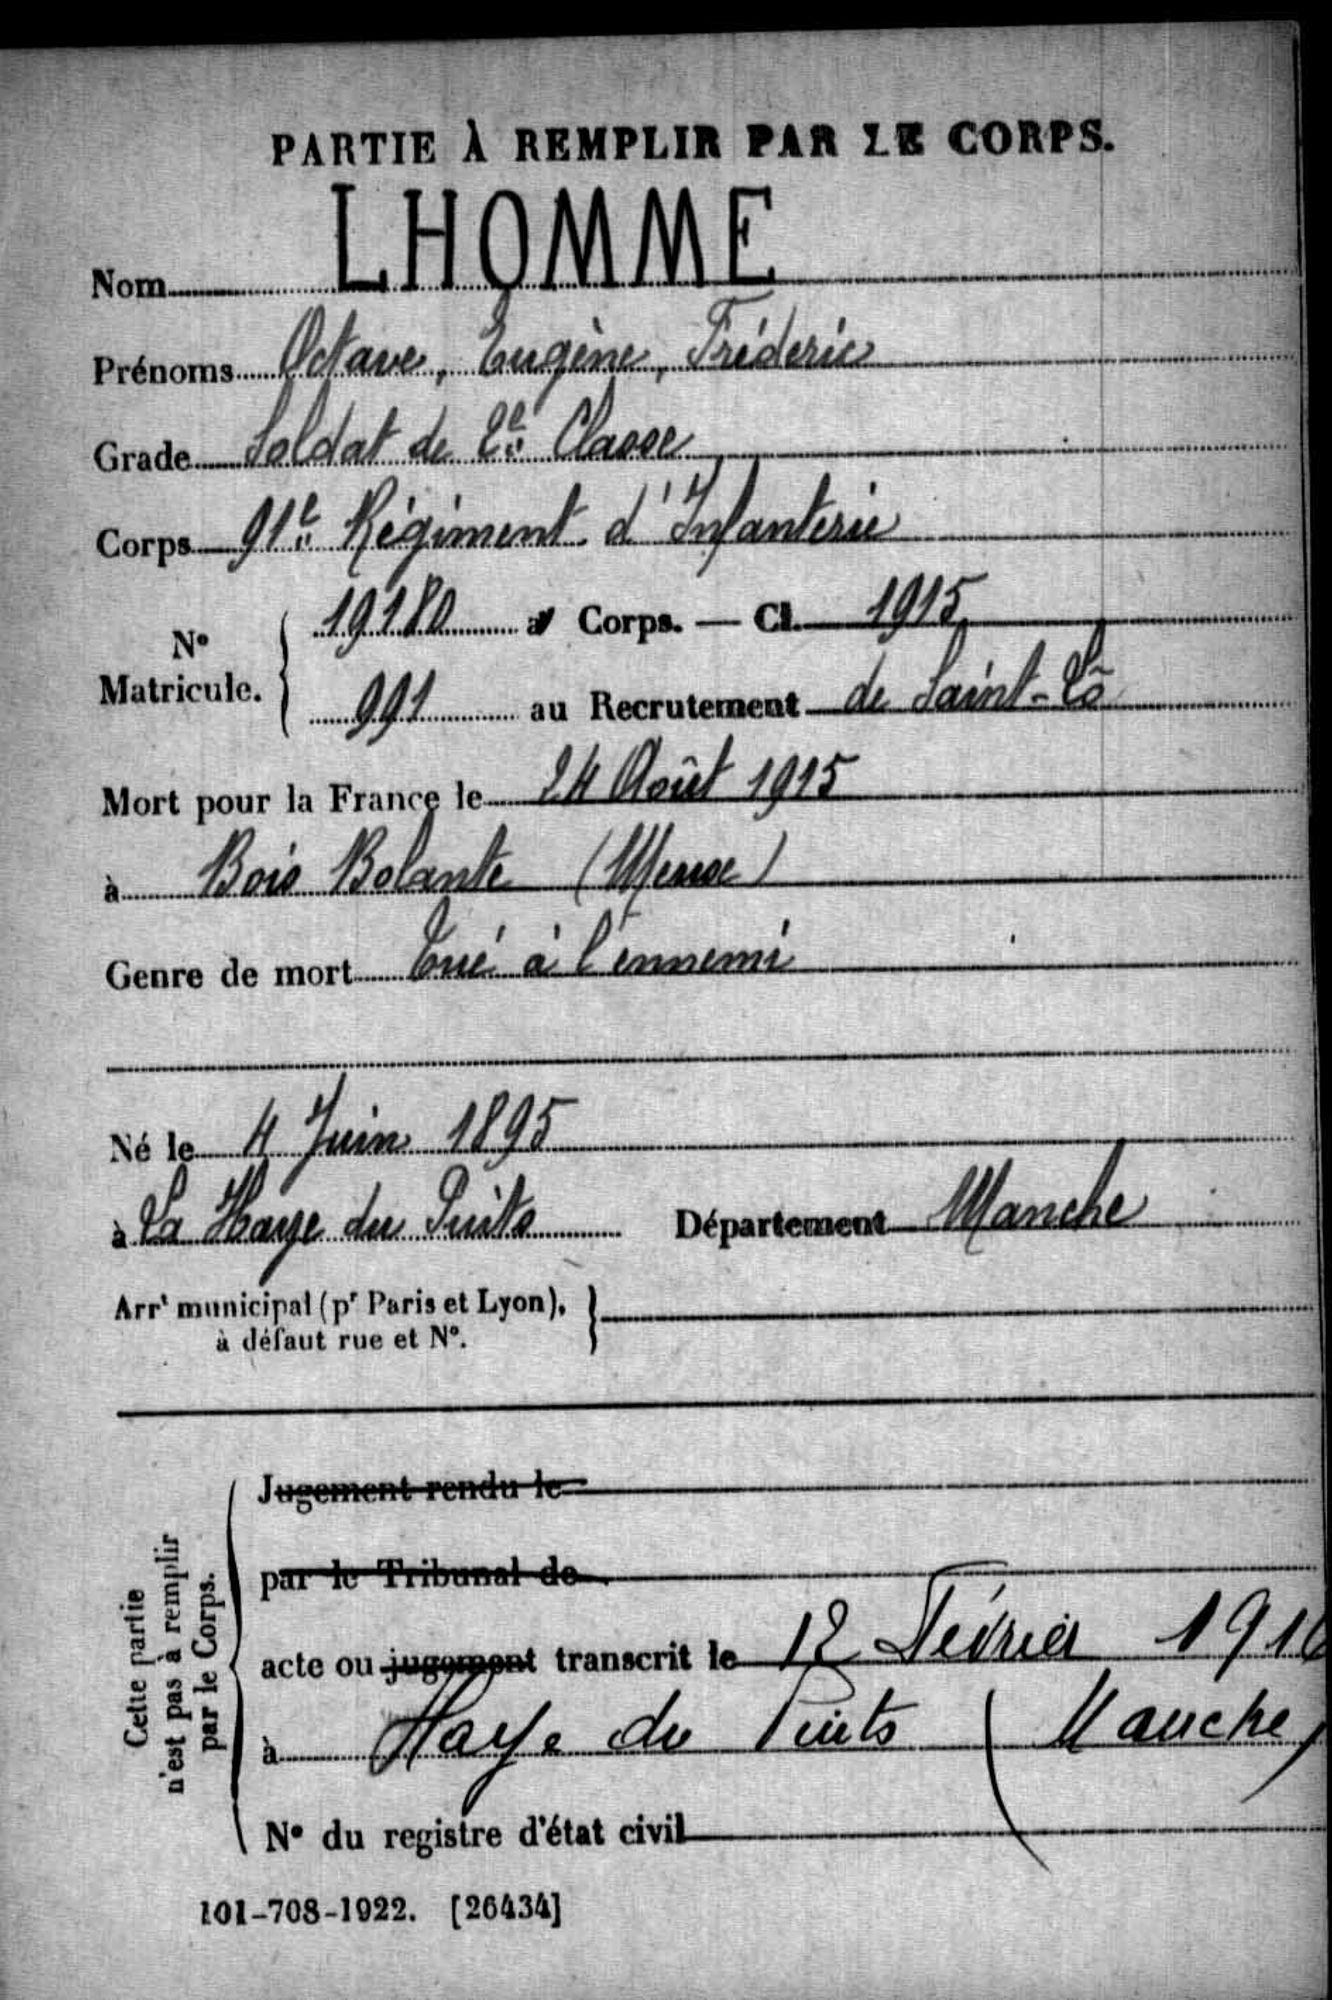 PARTIE À REMPLIR PAR LE CORPS.
Nom LHOMME
Prénoms Octave, Eugène, Fréderic
Grade Soldat de 2e Classe
Corps 91e Régiment d'Infanterie
N° Matricule. 19180 au Corps. — Cl. 1915
991 au Recrutement de Saint-Lô
Mort pour la France le 24 Août 1915
à Bois Bolante (Meuse)
Genre de mort Tué à l'ennemi
Né le 4 Juin 1895
à La Haye du Puits Département Manche
Arrt municipal (pr Paris et Lyon),
à défaut rue et N°.
Cette partie
n'est pas à remplir
par le Corps.
Jugement rendu le
par le Tribunal de
acte ou jugement transcrit le 12 Février 1916
à Haye du Puits (Manche)
N° du registre d'état civil
101-708-1922. [26434]